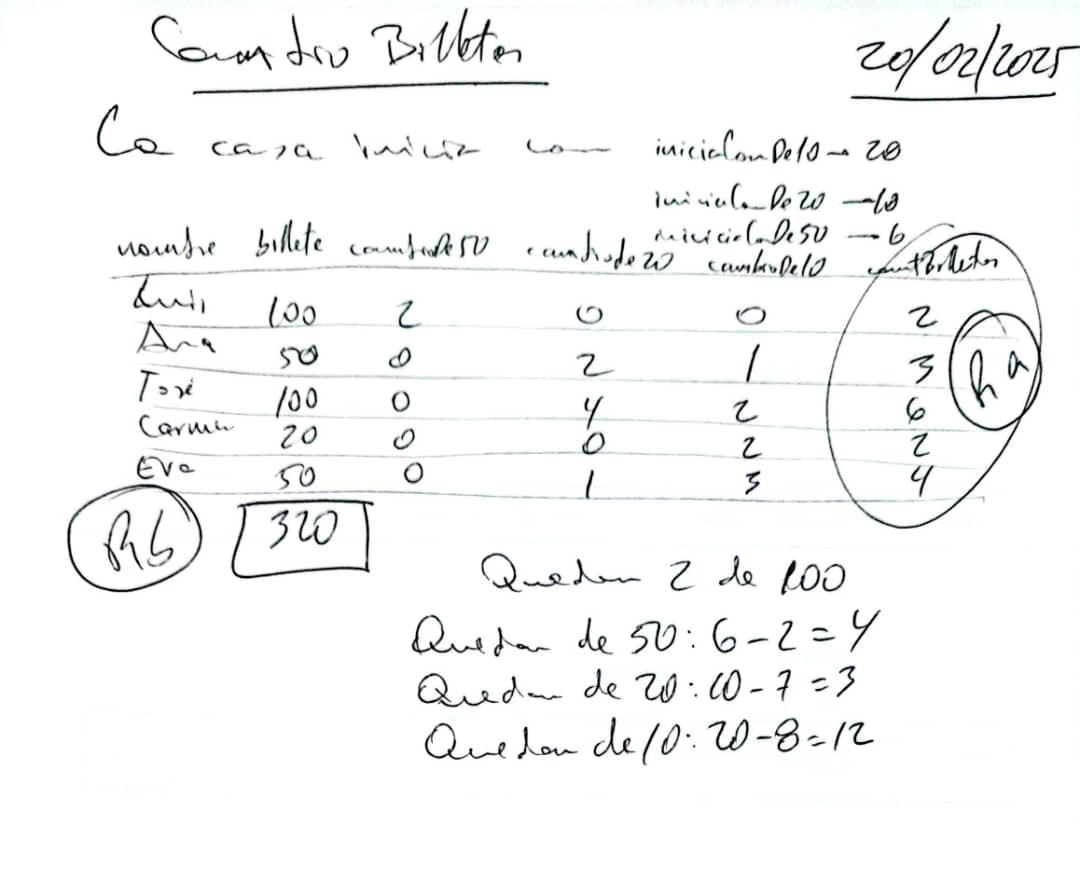 Cambio Billetes 20/02/2025
La casa inicia con inicialonDe10 → 20
De20 → 10
De50 → 6
nombre billete cambioDe50 cambiode20 cambioDe10 cantBilletes
Luis 100 2 0 0 2
Ana 50 0 2 1 3
José 100 0 4 2 6
Carmen 20 0 0 2 2
Eva 50 0 1 3 4
Ra
Rb 320
Quedan 2 de 100
Quedan de 50: 6-2=4
Quedan de 20: 10-7=3
Quedan de 10: 20-8=12